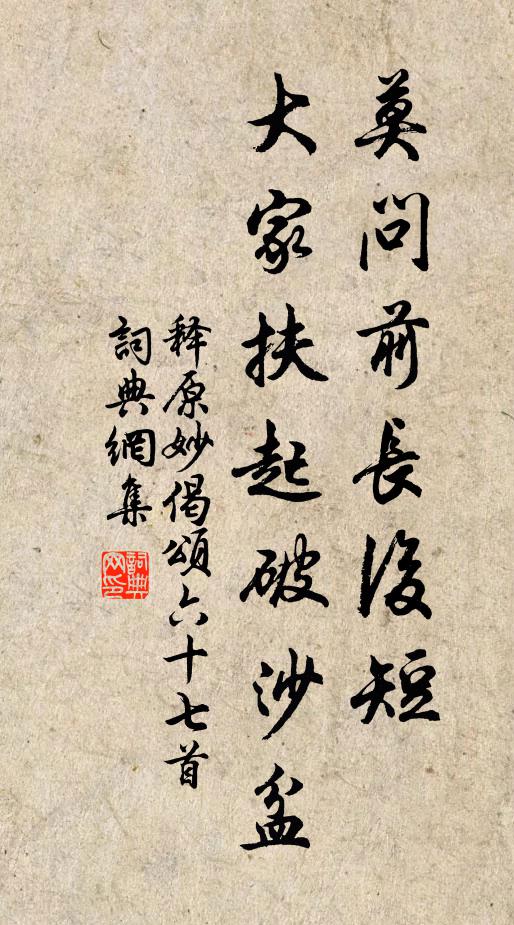 莫問前長後短
大家扶起破沙盆
釋原妙偈頌六十七首
詞典網集
詞典網印